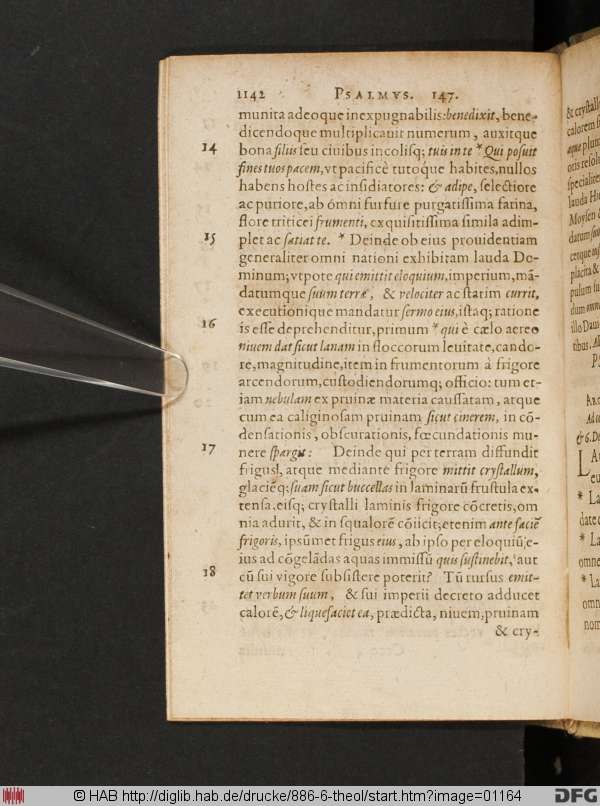 1142 PSALMVS. 147.
munita adeoque inexpugnabilis: benedixit, bene-
dicendoque multiplicauit numerum, auxitque
14 bona filiis seu ciuibus incolisq; tuis in te * Qui posuit
fines tuos pacem, vt pacificè tutoque habites, nullos
habens hostes ac insidiatores: & adipe, selectiore
ac puriore, ab ómni furfure purgatissima farina,
flore triticei frumenti, exquisitissima simila adim-
15 plet ac satiat te. * Deinde ob eius prouidentiam
generaliter omni nationi exhibitam lauda Do-
minum; vtpote qui emittit eloquium, imperium, mā-
datumque suum terræ, & velociter ac statim currit,
executionique mandatur sermo eius, istaq; ratione
16 is esse deprehenditur, primum * qui è cælo aereo
niuem dat sicut lanam in floccorum leuitate, cando-
re, magnitudine, item in frumentorum à frigore
arcendorum, custodiendorumq; officio: tum et-
iam nebulam ex pruinæ materia caussatam, atque
cum ea caliginosam pruinam sicut cinerem, in cō-
densationis, obscurationis, fœcundationis mu-
17 nere spargit: Deinde qui per terram diffundit
frigus, atque mediante frigore mittit crystallum,
glaciēq; suam sicut buccellas in laminarū frustula ex-
tensa. eisq; crystalli laminis frigore cōcretis, om
nia adurit, & in squalorē cōiicit; etenim ante faciē
frigoris, ipsūmet frigus eius, ab ipso per eloquiū; e-
ius ad cōgelādas aquas immissū quis sustinebit, aut
18 cū sui vigore subsistere poterit? Tū rursus emit-
tet verbum suum, & sui imperii decreto adducet
calorē, & liquefaciet ea, prædicta, niuem, pruinam
& cry-
& crystall
calorem
aquæ plum
specialiter
lauda
Moysen
datum
placita &
pulum
dum
illo Daui
tibus.
LA
* La
* La
omne
* La
omn
nom
© HAB http://diglib.hab.de/drucke/886-6-theol/start.htm?image=01164
DFG